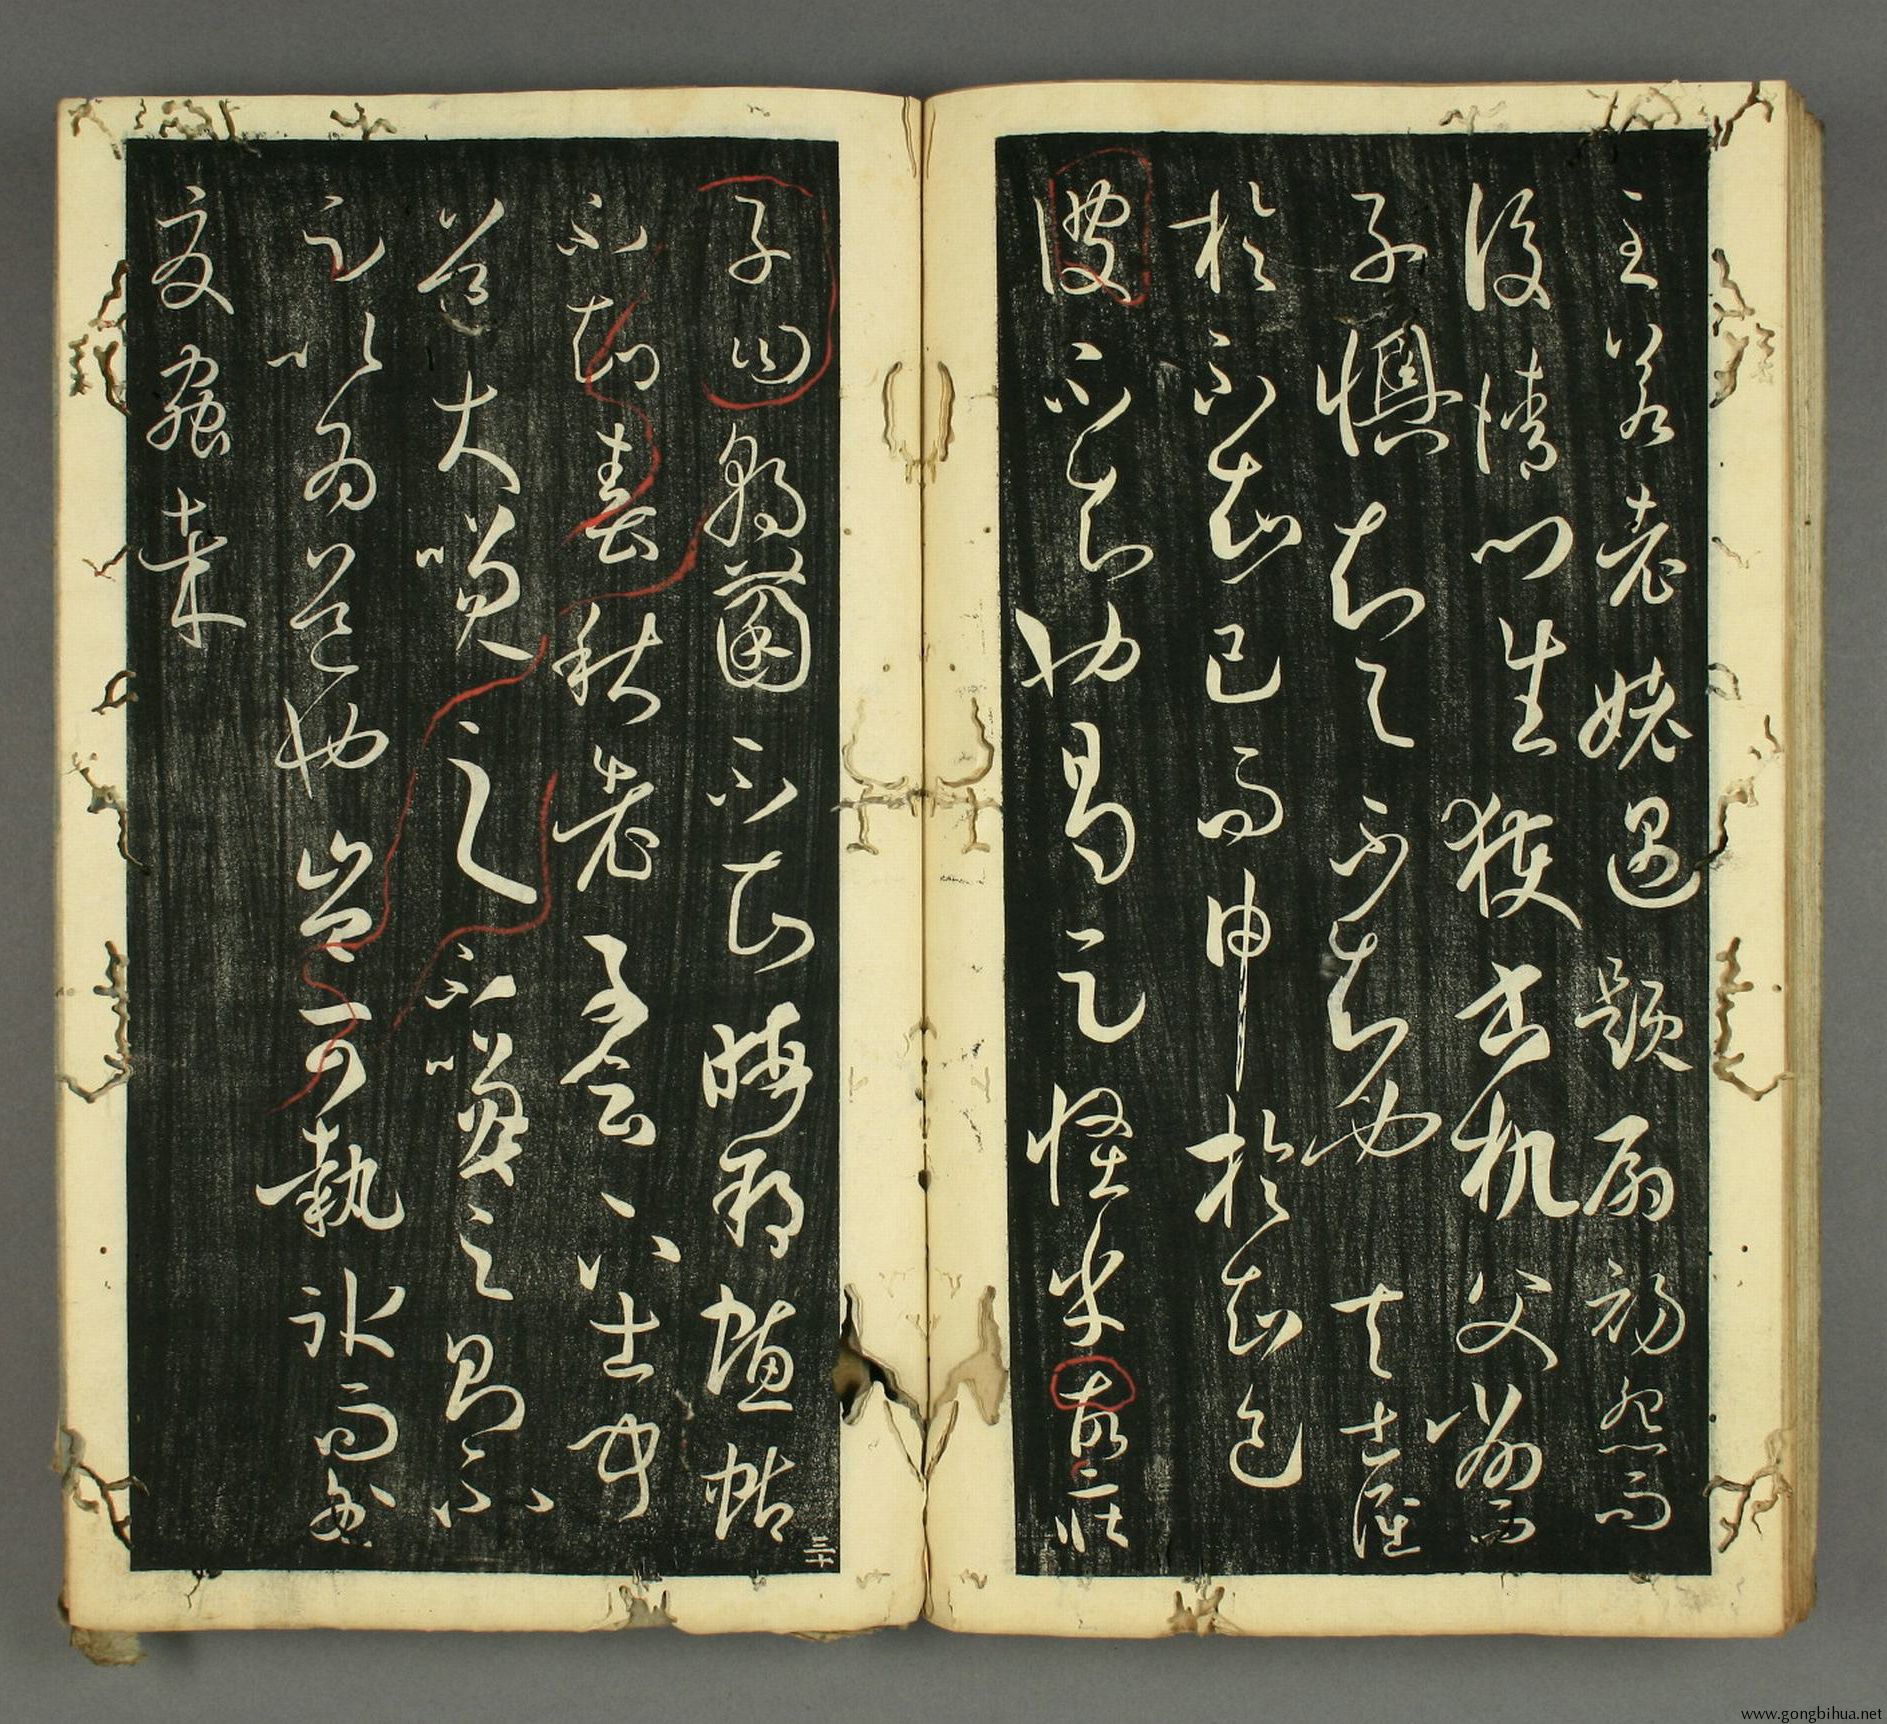 至若老姥遇題扇初怨而
後請門生獲書机父削而
子懊知與不知也夫士屈
於不知己而申於知己
彼不知也曷足怪乎故莊
子曰朝菌不知晦朔蟪蛄
不知春秋老子云下士聞
道大笑之不笑之則不
足以為道也豈可執冰而咎
夏蟲哉
三十
www.gongbihua.net